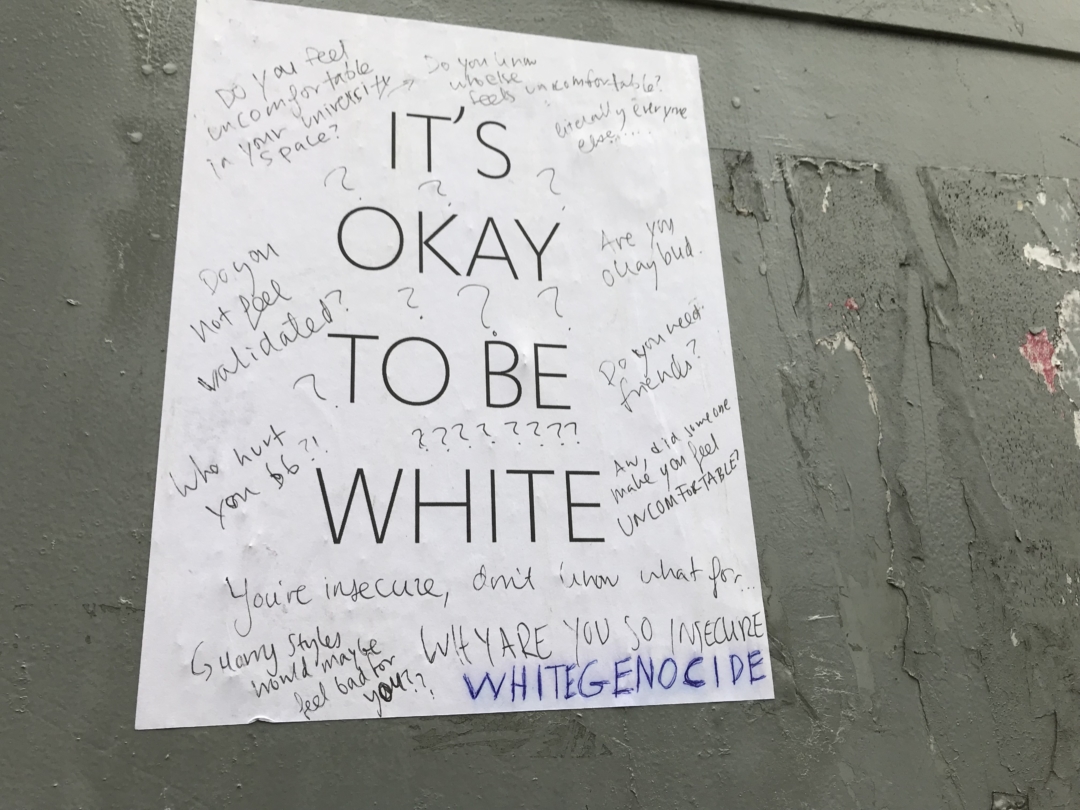 Do you feel
uncomfortable
in your university
space?
Do you know
who else
feels uncomfortable?
literally everyone
else....
IT'S
? ? ?
OKAY
Are you
okay bud.
Do you
not feel
validated?
? ? ?
TO BE
Do you need
friends?
?
? ? ? ? ? ? ? ?
Who hurt
you bb?!
WHITE
Aw, did someone
make you feel
UNCOMFORTABLE?
You're insecure, don't know what for...
Harry Styles
would maybe
feel bad for
you??
WHY ARE YOU SO INSECURE
WHITEGENOCIDE